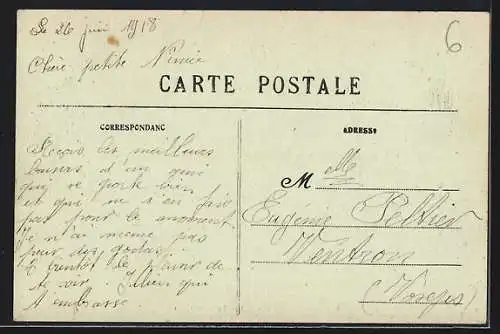 Le 26 juin 1918
6
Chère petite Ninie
CARTE POSTALE
CORRESPONDANC
ADRESSE
Reçois les meilleurs
baisers d'un qui
qui se porte bien
et qui ne s'en fait
pas pour le moment
Je n'ai même pas
peur des gothas.
A bientôt le plaisir de
te voir. Julien qui
t'embrasse
M lle
Eugénie Peltier
Ventron
(Vosges)